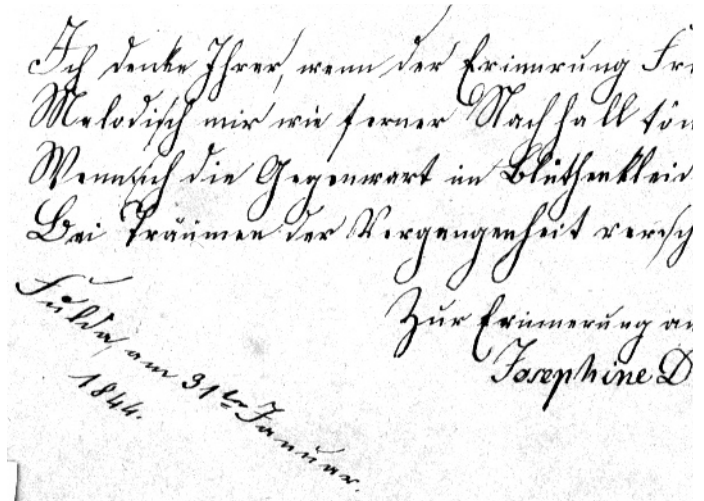 Ich denke Ihrer, wenn der Erinnrung Fre
Melodisch mir wie ferner Nachhall tön
Wenn sich die Gegenwart im Blüthenkleid
Bei Träumen der Vergangenheit versch
Zur Erinnerung an
Josephine D
Fulda, am 31ten Januar.
1844.